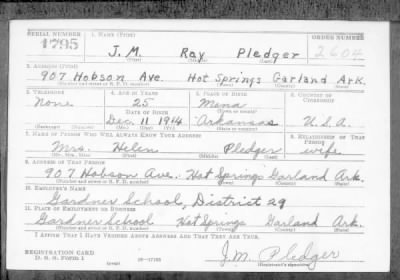 SERIAL NUMBER 1. NAME (Print) ORDER NUMBER
1795 J.M. Ray Pledger 2604
(First) (Middle) (Last)
2. ADDRESS (Print)
907 Hobson Ave. Hot Springs Garland Ark.
(Number and street or R. F. D. number) (Town) (County) (State)
3. TELEPHONE 4. AGE IN YEARS 5. PLACE OF BIRTH 6. COUNTRY OF CITIZENSHIP
None 25 Mena
DATE OF BIRTH (Town or county)
Dec. 11 1914 Arkansas U.S.A.
(Exchange) (Number) (Mo.) (Day) (Yr.) (State or country)
7. NAME OF PERSON WHO WILL ALWAYS KNOW YOUR ADDRESS 8. RELATIONSHIP OF THAT PERSON
Mrs. Helen Pledger wife
(Mr., Mrs., Miss) (First) (Middle) (Last)
9. ADDRESS OF THAT PERSON
907 Hobson Ave. Hot Springs Garland Ark.
(Number and street or R. F. D. number) (Town) (County) (State)
10. EMPLOYER'S NAME
Gardner School, District 29
11. PLACE OF EMPLOYMENT OR BUSINESS
Gardner School Hot Springs Garland Ark.
(Number and street or R. F. D. number) (Town) (County) (State)
I AFFIRM THAT I HAVE VERIFIED ABOVE ANSWERS AND THAT THEY ARE TRUE.
REGISTRATION CARD
D. S. S. Form 1 (over) 16-17105 J.M. Pledger
(Registrant's signature)